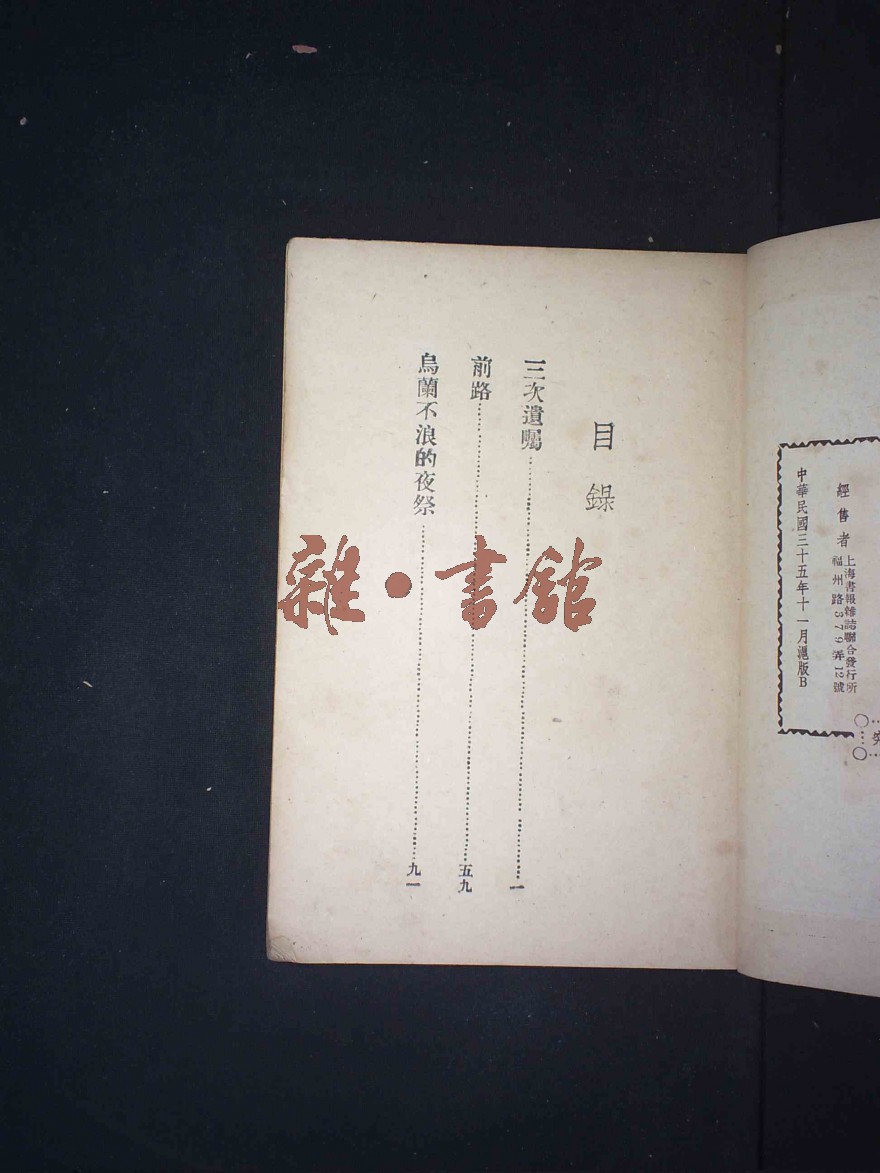 經售者
上海書報雜誌聯合發行所
福州路379弄12號
中華民國三十五年十一月滬版B
目錄
三次遺囑……一
前路……五九
烏蘭不浪的夜祭……九一
雜·書館